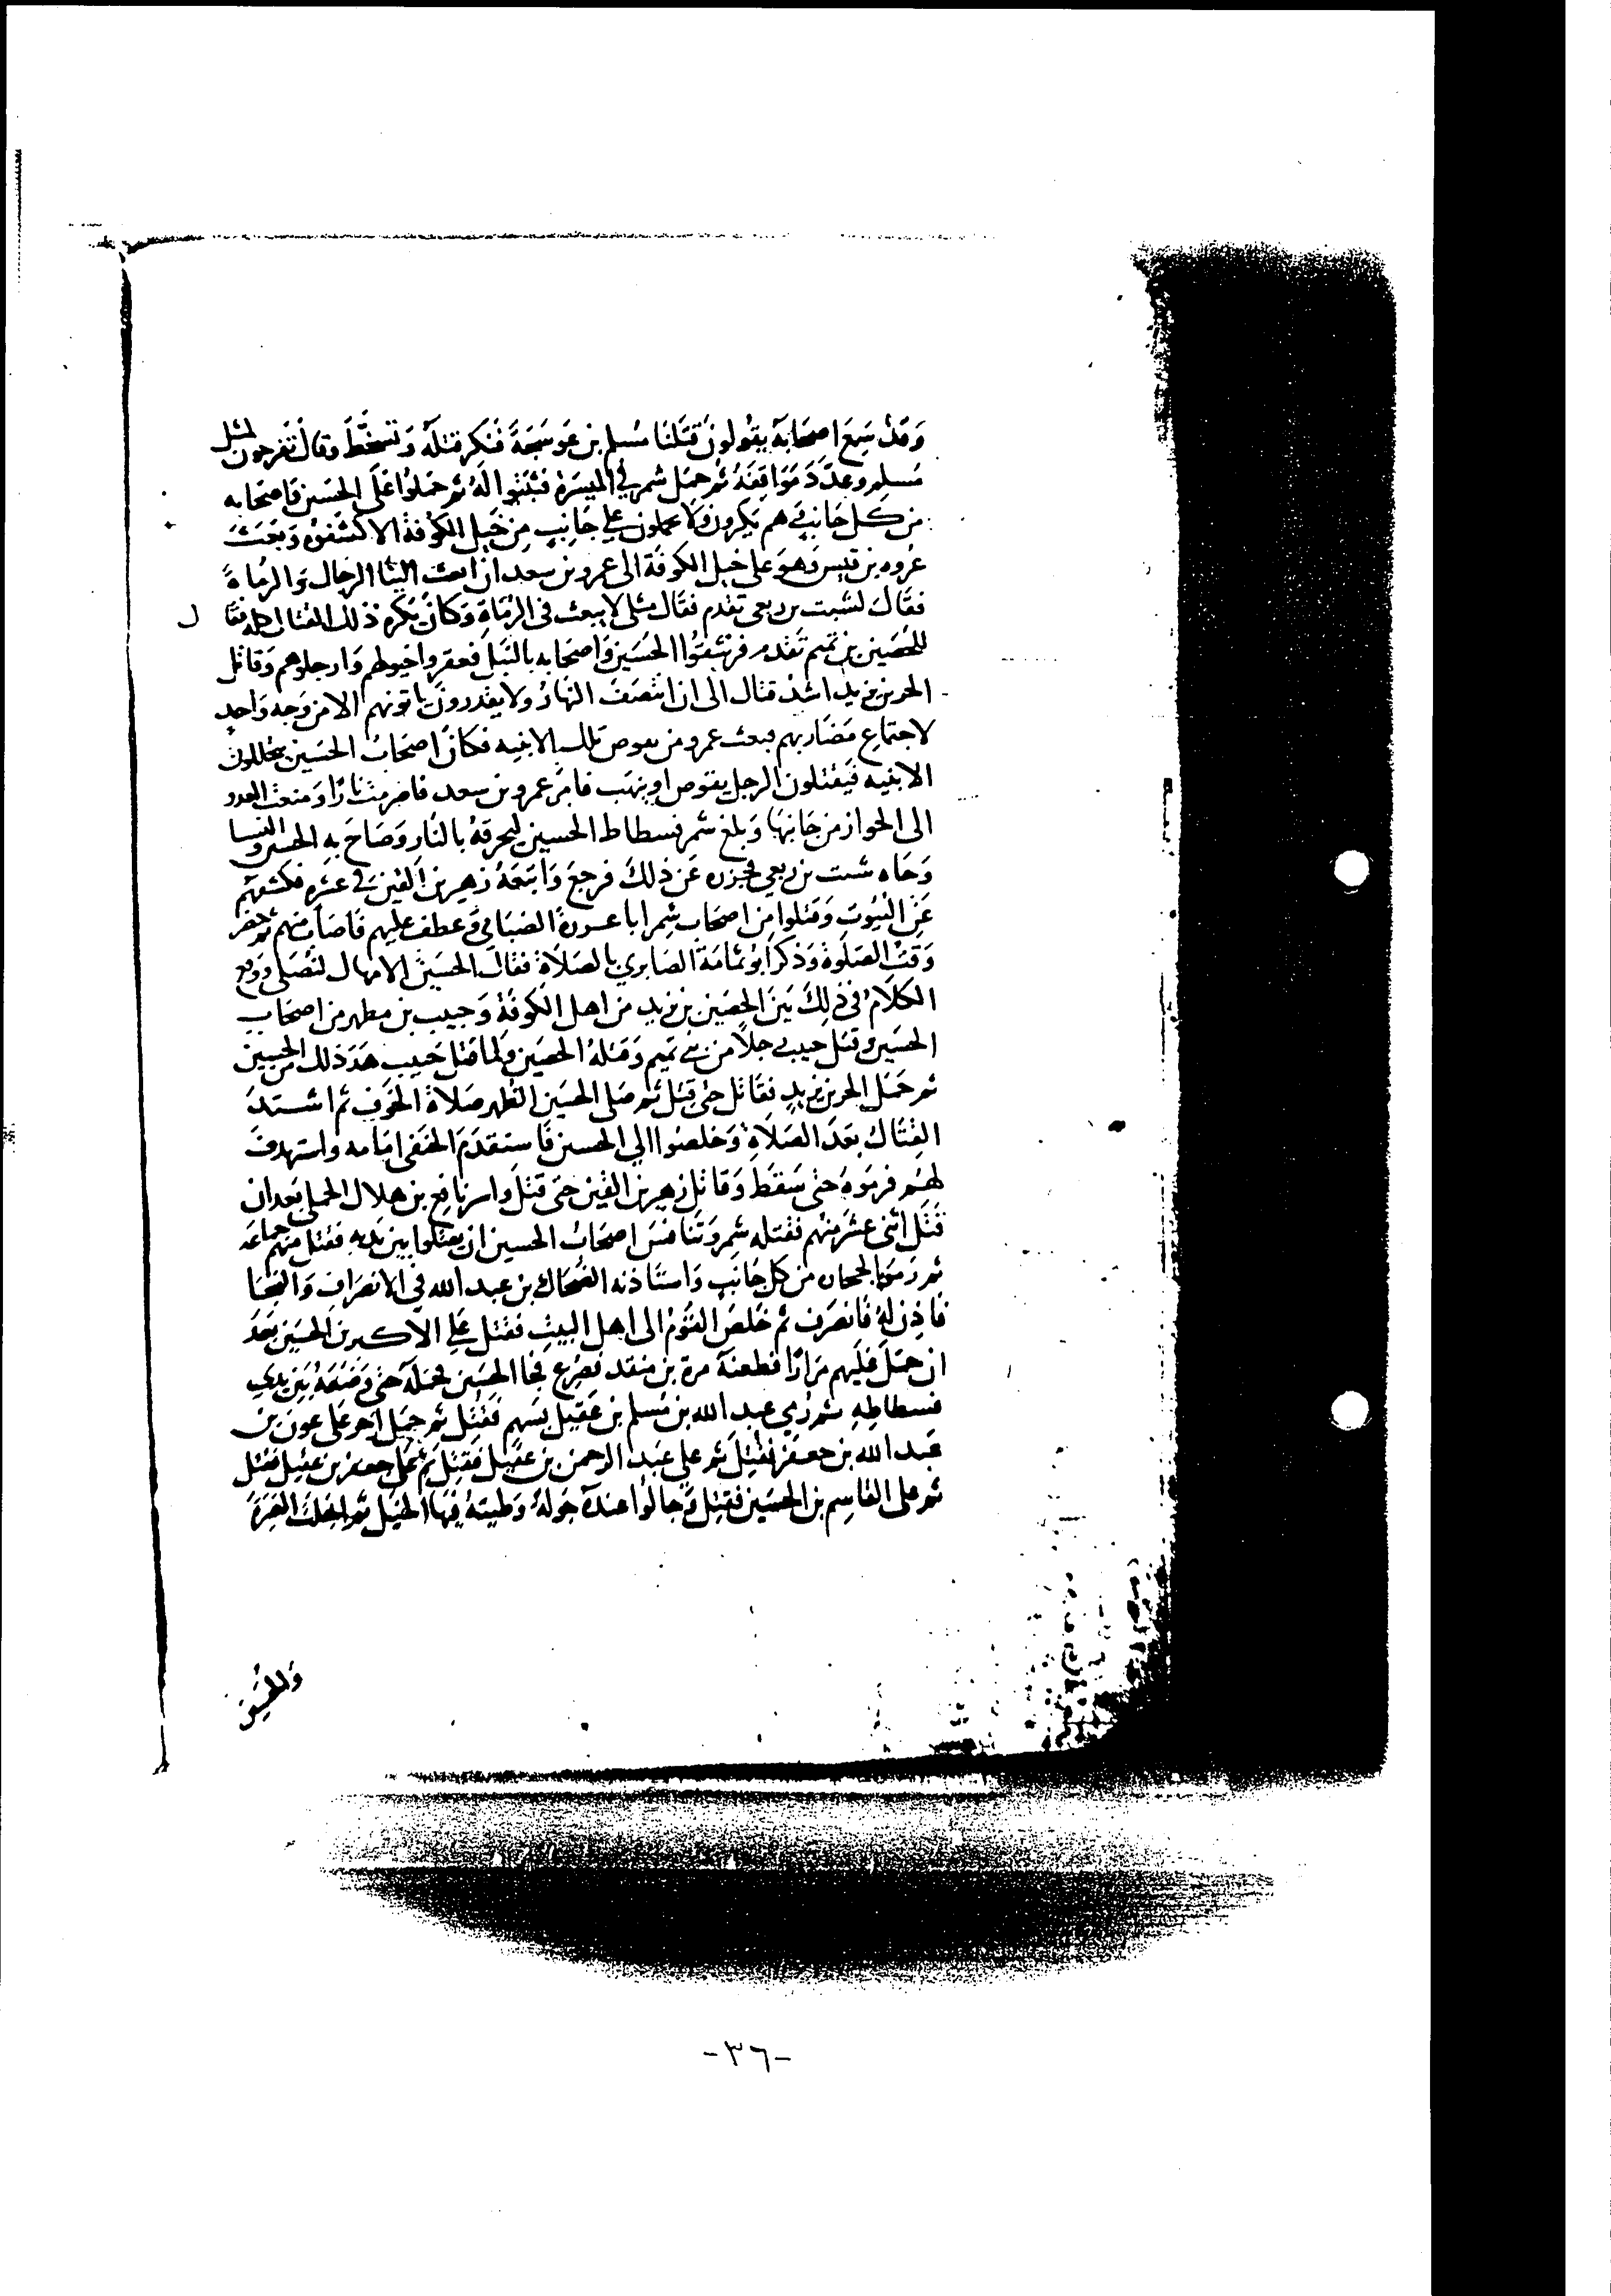 وَقَدْ سَمِعَ اصحَابَهُ يقُولُونَ قَتَلنَا مُسلم بن عَوسَجَةَ فَنكر قتلَهُ وَتسَخَّطَ وقال تَفرحون لمثل
مُسلم وعدَّدَ مَوَاقِفَهُ ثم حمَل شمر في الميسَرة فثبتوا لَهُ ثم حَملوُا عَلَى الحسَين فاصحَابه
من كل جَانب وهم يكرون ولا يحملون علي جَانِبٍ مِن خَيل الكوُفة الا كشفوه وَبَعَثَ
عُروه بن قيس وَهوَ على خيل الكوفَة الى عمرو بن سعد ان ابعث الينا الرجال وَالرُماةً
فقالَ لشبث بن ربعي تقدم فقال مثلي لا يبعث فى الرُمَاةِ وَكانَ يَكره ذلك القتال اجله فقا ل
للحُصَين بن تميم تَقدم فرشقوُا الحُسَين وَاصحَابه بالنبَل فعقروا خيولهم وَارجلوهم وَقاتل
الحر بن يزيد اشدَّ قتال الى ان انتصَفَ النهَارُ ولا يقدرونَ ياتونهم الا من وَجه وَاحدٍ
لاجتماعِ مَضَاربهم فبعث عمرو من يعوص تلك الابنيه فكانَ اصحَابُ الحسَين يتخللون
الابنيه فيَقتلون الرجل يقوص او ينهَب فامَر عمرو بن سعد فاضرمت نارًا وَمنعت العدو
الى الجواز من جَانبهَا وَبلغ شمر فسطاط الحسين ليحرقهُ بالنار وَصَاحَ بهِ الحسين والنسا
وَجَاه شبث بن ربعي فحجزه عَن ذلكَ فرجعَ وَاتبعهُ زهير بن القين في عشره فكشفهم
عَن البُيوت وَقتلوا مِن اصحَابِ شِمر ابا عزة الضبَابي وعطف عليهم فاصَابَ منهم ثم حضر
وَقتُ الصَلوة وَذكر ابو ثمامَة الصَابري بالصَلاة فقالَ الحسَين الامهال لنصَلى ووقع
الكلامُ في ذلِكَ بَينَ الحصَين بن يزيد من اهل الكوفَة وَحبيب بن مطهر من اصحَابِ
الحسَين وقتل حبيب رجلاً من بني تميم وَقتلهُ الحصَين ولما قتل حَبيب هَدَّ ذلك من الحسين
ثم حَمَل الحر بن يزيد فقاتل حتى قتل ثم صَلى الحسَين الظهر صَلاة الخَوف ثم اشتدَّ
القِتال بعَدَ الصَلاةِ وَخلصُوا الي الحسين فاستقدَم الحنفي امَامه واستهدفَ
لهم فرموهُ حتى سَقط وَقاتل زهير بن القين حَتى قتل واسر نافع بن هلال الجملي بعد ان
قتَل اثنى عشر منهُم فقتله شِمر وَتنافسَ اصحَابُ الحسين ان يقتلوا بين يَديه فقتل منهم جماعَة
ثم رَموُا بالحجاره من كل جَانبٍ وَاستَاذنه الضحاك بن عبد الله في الانصَرافِ وَالنجَا
فاذِن لهُ فانصَرف ثم خلصَ القَوم الى اهل البيتِ فقتل علي الاكبر بن الحسَين بعدَ
ان حمَل عَليهم مَرارًا فطعنهُ مرة بن منقد فصُرع فجا الحسَين فحمَلهُ حتى وَضعَهُ بَين يدي
فسطاطِهِ ثم رُمي عبد الله بن مُسلم بن عَقيل بسَهم فقُتل ثم حمل اخر عَلى عون بن
عَبد الله بن جعفر فقُتِلَ ثم على عَبد الرحمن بن عقيل فقتِل ثم على جعفر بن عقيل فقتل
ثم على القاسِم بن الحسَين فقتِل وَجالوُا عندهُ جَولهً وَطيتهُ فيهَا الخيَل ثم انجلت الغبَرة
وَالحُسَين
-٣٦-